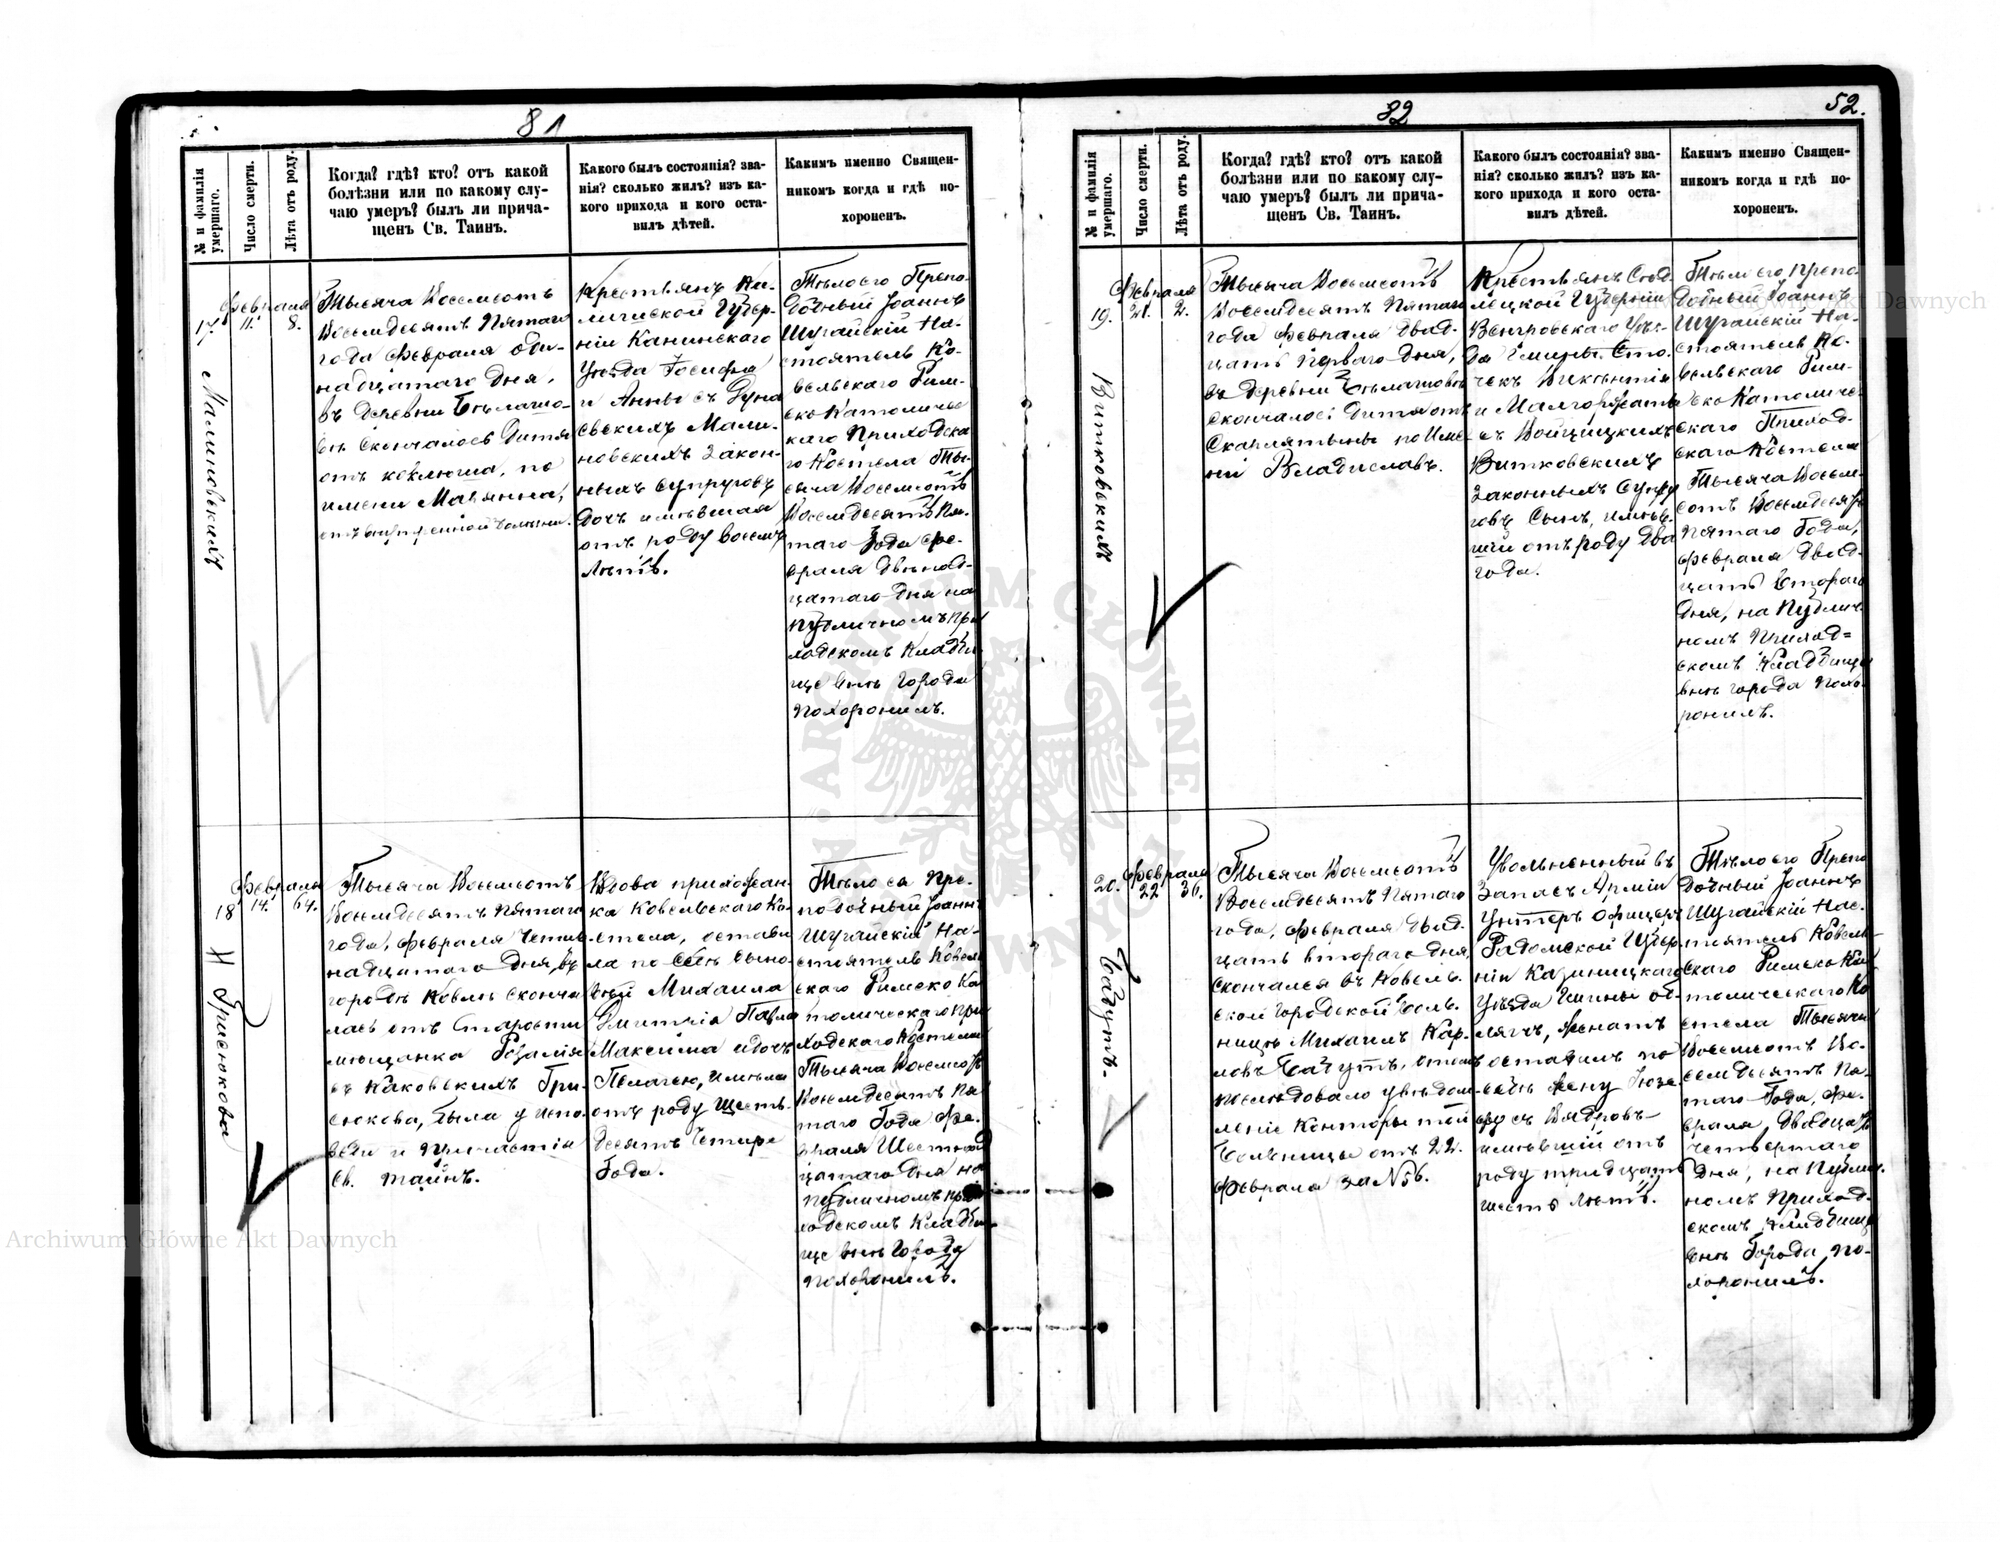 81
№ и фамилія умершаго.
Число смерти.
Лѣта отъ роду.
Когда? гдѣ? кто? отъ какой
болѣзни или по какому слу-
чаю умеръ? былъ ли прича-
щенъ Св. Таинъ.
Какого былъ состоянія? зва-
нія? сколько жилъ? изъ ка-
кого прихода и кого оста-
вилъ дѣтей.
Какимъ именно Священ-
никомъ когда и гдѣ по-
хороненъ.
17.
Февраля
11.
8.
Малиновскихъ
Тысяча Восемсотъ
Восемдесятъ Пятаго
года Февраля оди-
надцатаго дня,
въ деревни
скончалось Дитя
отъ коклюша, по
имени Маріанна,
Крестьянъ Ка-
лишской Губер-
ніи Канинского
Уѣзда Іосифа
и Анны съ Дуна
евскихъ Мали-
новскихъ Закон-
ныхъ супруговъ
дочь имѣвшая
отъ роду восемъ
лѣтъ.
Тѣло его Препо-
добный Іоаннъ
Шугайскій На-
стоятель Ко-
вельскаго Рим-
ско Католичес
каго Приходска
го Костела Ты-
сяча Восемсотъ
Восемдесятъ Пя-
таго Года Фе-
враля Двѣнад-
цатаго дня на
публичномъ при
ходскомъ кладби
ще внѣ города
похоронилъ.
18
Февраля
14.
64.
Грисюкова
Тысяча Восемсотъ
Восемдесятъ Пятаго
года, Февраля Четыр
надцатаго дня, въ
городѣ Ковлѣ сконча
лась отъ Старости
мѣщанка Розалія
съ Каковскихъ Гри-
сюкова, была у испо
веди и причастія
Св. тайнъ.
Вдова прихожан-
ка Ковельскаго Ко-
стела, остави
ла по себѣ Сыно-
вей Михаила
Дмитрія Павла
Максима и дочь
Пелагею, имѣла
отъ роду Шесть-
десятъ Четыре
Года.
Тѣло ея Пре-
подобный Іоаннъ
Шугайскій На-
стоятель Ковель
скаго Римско Ка
толическаго при
ходскаго Костела
Тысяча Восемсотъ
Восемдесятъ Пя
таго Года Фе-
враля Шестнад
цатаго дня, на
публичномъ при
ходскомъ кладби
ще внѣ города
похоронилъ.
82
52.
№ и фамилія умершаго.
Число смерти.
Лѣта отъ роду.
Когда? гдѣ? кто? отъ какой
болѣзни или по какому слу-
чаю умеръ? былъ ли прича-
щенъ Св. Таинъ.
Какого былъ состоянія? зва-
нія? сколько жилъ? изъ ка-
кого прихода и кого оста-
вилъ дѣтей.
Какимъ именно Священ-
никомъ когда и гдѣ по-
хороненъ.
19.
Февраля
21.
2.
Витковскихъ
Тысяча Восемсотъ
Восемдесятъ Пятаго
года Февраля двад-
цать перваго дня,
въ деревни
скончалось Дитя отъ
Скарлятыны по Име-
ни Владиславъ.
Крестьянъ Сѣд-
лецкой Губерніи
Венгровскаго Уѣз-
да Гмины Сто-
чекъ Викентія
и Малгоржаты
съ Войцицкихъ
Витковскихъ
Законныхъ Супру
говъ Сынъ, имѣв-
шій отъ роду два
года.
Тѣло его Препо-
добный Іоаннъ
Шугайскій На-
стоятель Ко-
вельскаго Рим-
ско Католичес-
скаго Приход-
скаго Костела
Тысяча Восем-
сотъ Восемдесятъ
Пятаго Года,
Февраля двад-
цать втораго
дня, на Публич-
номъ Приход=
скомъ Кладбище
внѣ города похо-
ронилъ.
20.
Февраля
22
36.
Багутъ.
Тысяча Восемсотъ
Восемдесятъ Пятаго
года, Февраля двад-
цать втораго дня,
скончался въ Ковель-
ской городской боль-
ницѣ Михаилъ Кар-
ловъ Багутъ, о чемъ
послѣдовало увѣдом
леніе Конторы той
Больницы отъ 22.
Февраля за №56.
Увольненный въ
Запасъ Арміи
Унтеръ Офицеръ
Радомской Губер-
ніи Казиницкаго
Уѣзда Гмины об-
лягчъ, женатъ
оставилъ по
себѣ жену Юзе
имѣвшій отъ
роду тридцать
шесть лѣтъ.
Тѣло его Препо
добный Іоаннъ
Шугайскій Нас-
тоятель Ковель-
скаго Римско Ка
толическаго Ко
стела Тысяча
Восемсотъ Во-
семдесятъ Пя-
таго Года, Фе-
враля, двадцать
четвертаго
дня, на Публич-
номъ Приход-
скомъ Кладбище
внѣ Города, по-
хоронилъ.
Archiwum Główne Akt Dawnych
ARCHIWUM GŁÓWNE AKT DAWNYCH